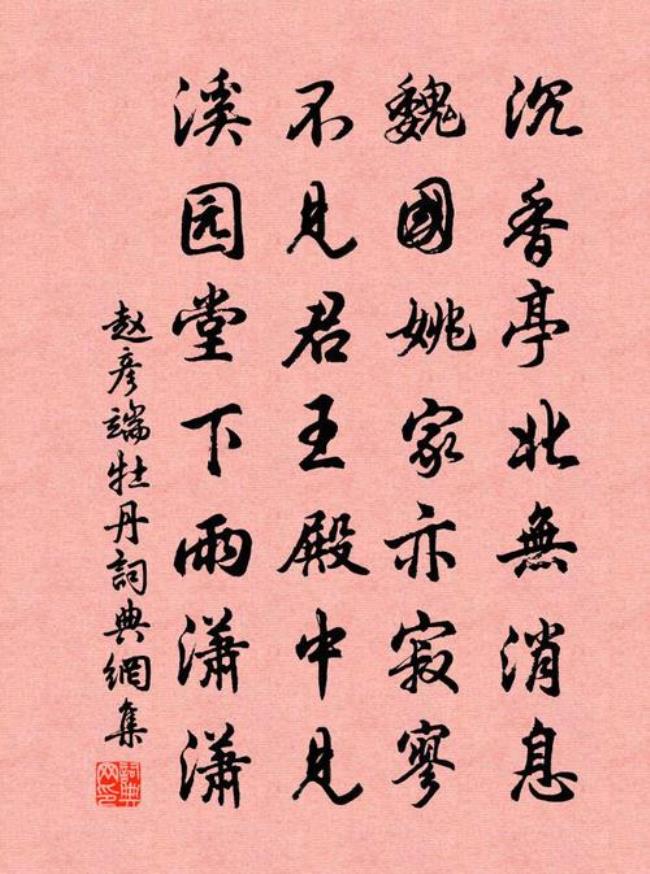 沉香亭北無消息
魏國姚家亦寂寥
不見君王殿中見
溪园堂下雨潇潇
赵彦端牡丹詞典網集
詞典
网印